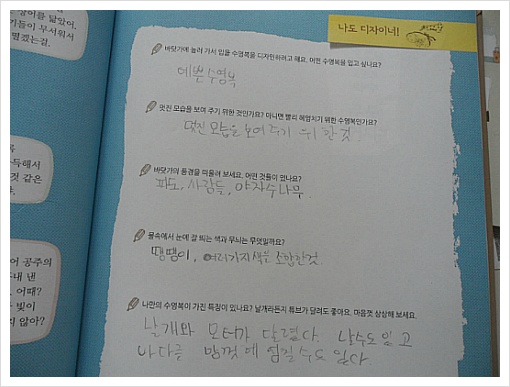 장이를 닮았어,
기들이 무서워서
떻겠는걸.
나도 디자이너!
바닷가에 놀러 가서 입을 수영복을 디자인하려고 해요. 어떤 수영복을 입고 싶나요?
예쁜 수영복
멋진 모습을 보여 주기 위한 것인가요? 아니면 빨리 헤엄치기 위한 수영복인가요?
멋진 모습을 보여 주기 위한 것.
바닷가의 풍경을 떠올려 보세요. 어떤 것들이 있나요?
파도, 사람들, 야자수나무.
득해서
것 같은
물속에서 눈에 잘 띄는 색과 무늬는 무엇일까요?
땡땡이, 여러가지색을 조합한것
어 공주의
내 낸
어때?
빛이
지 않아?
나만의 수영복이 가진 특징이 있나요? 날개라든지 튜브가 달려도 좋아요. 마음껏 상상해 보세요.
날개와 모터가 달렸다. 날수도 있고
바다를 맘껏 헤엄칠수도 있다.